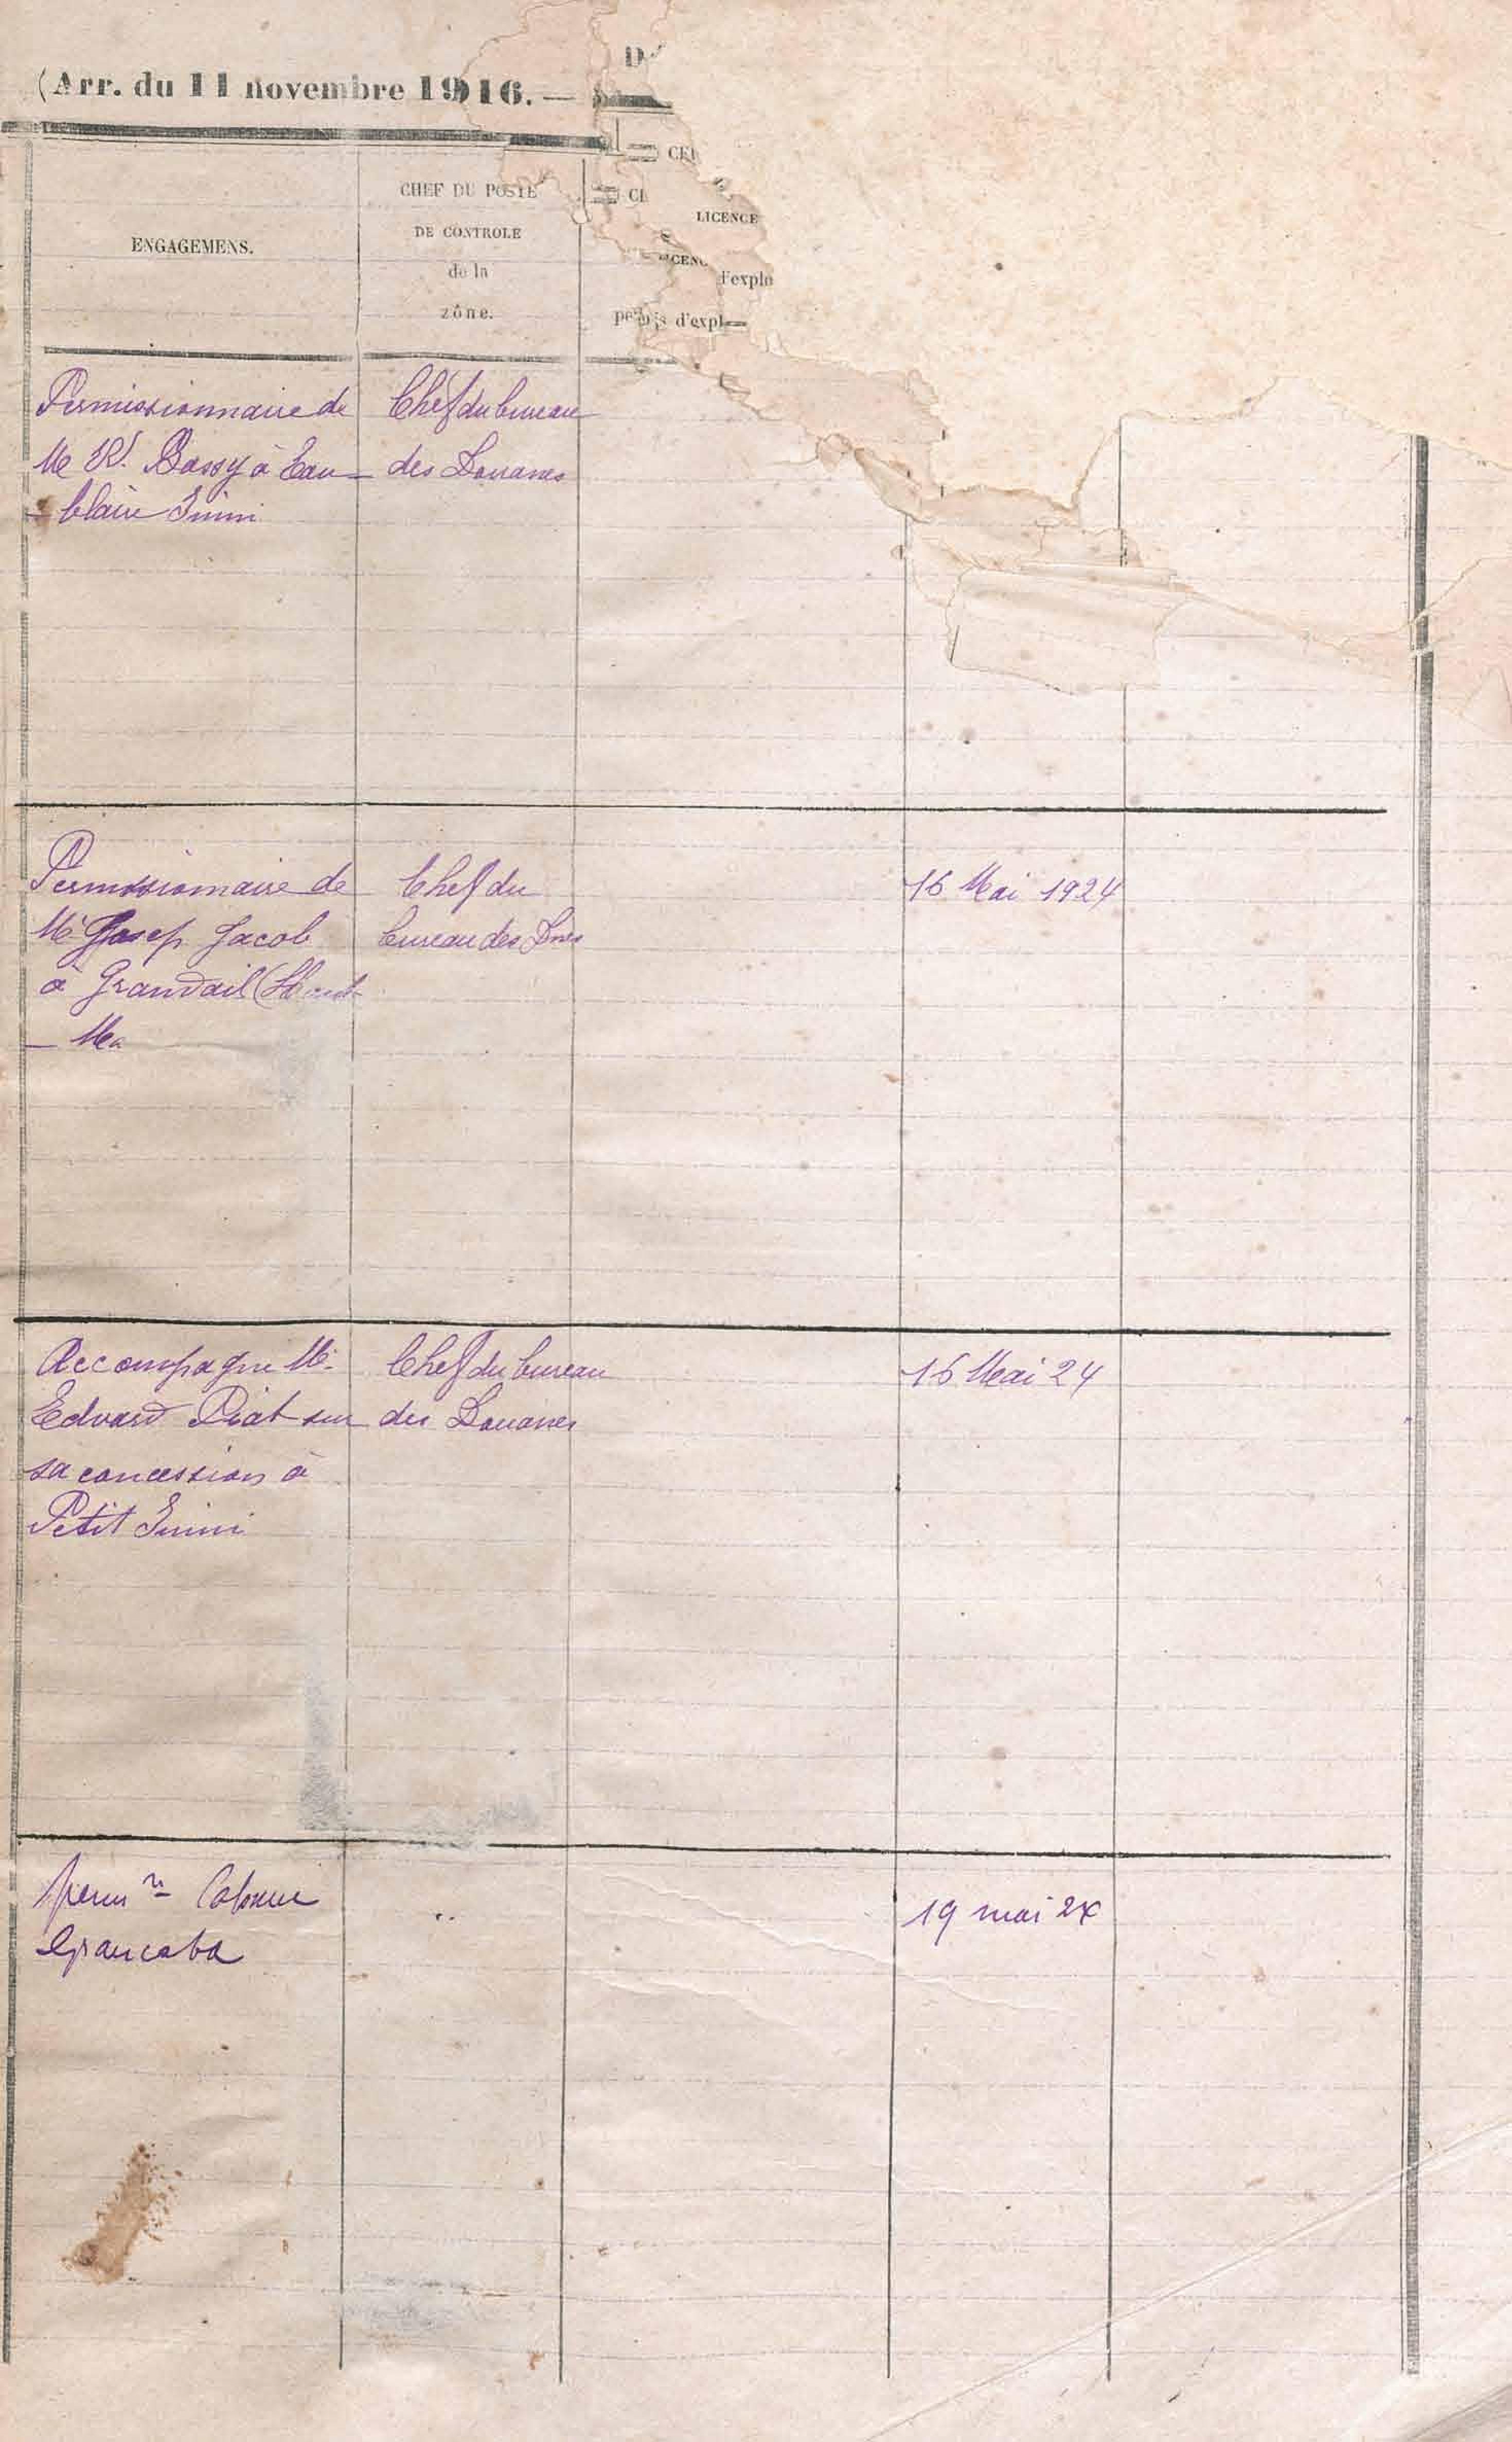 (Arr. du 11 novembre 1916. —
ENGAGEMENS.
CHEF DU POSTE
DE CONTROLE
de la
zône.
LICENCE
d'explo
permis d'expl
Permissionnaire de
Mr R. Bassy à Eau
- Claire Inini
Chef du bureau
des Douanes
Permissionnaire de
Mr Josep Jacob
à Grandail (Haut
- Ma
Chef du
bureau des Dnes
16 Mai 1924
Accompagne Mr
Edouard Piat sur
sa concession à
Petit Inini
Chef du bureau
des Douanes
16 Mai 24
perm re
19 mai 24